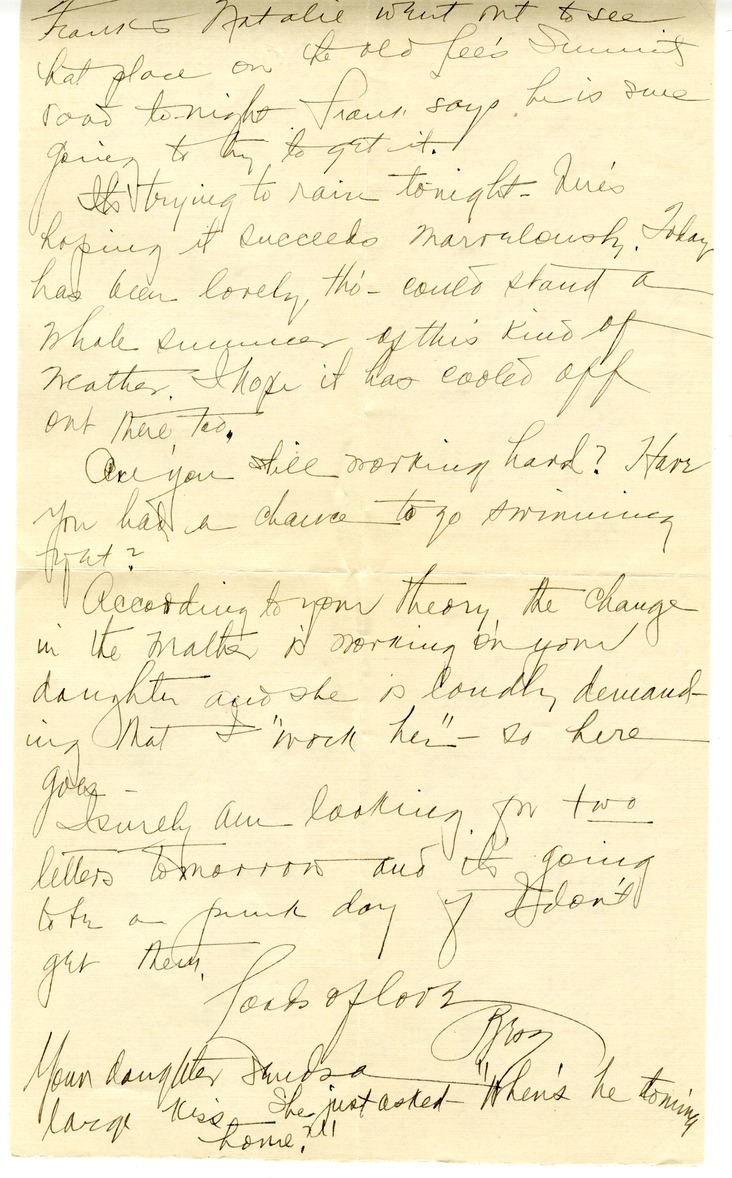 Frank & Natalie went out to see
that place on the old Lee's Summit
road to-night. Frank says he is sure
going to try to get it.
It's trying to rain tonight - here's
hoping it succeeds marvelously. Today
has been lovely, tho' - could stand a
whole summer of this kind of
weather. I hope it has cooled off
out there, too.
Are you still working hard? Have
you had a chance to go swimming
yet?
According to your theory, the change
in the weather is working on your
daughter and she is loudly demand-
ing that I "work her" - so here
goes -
I surely am looking for two
letters tomorrow and it's going
to be a punk day if I don't
get them.
Loads of love
Bess
Your daughter sends a
large kiss. She just asked "When's he coming
home?!!"